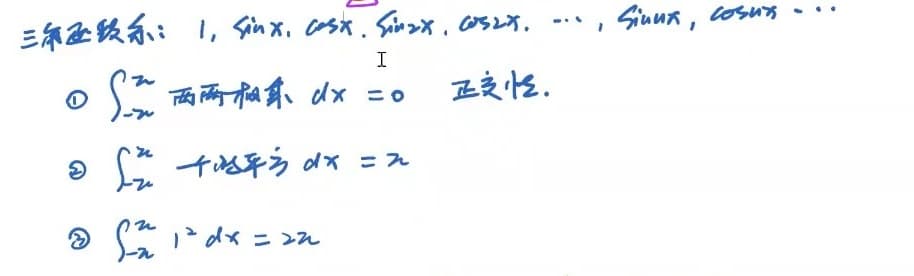 三角函数系：1, sinx, cosx, sin2x, cos2x, ⋯, sinnx, cosnx ⋯
① ∫_{-π}^{π} 两两相乘 dx = 0 正交性.
② ∫_{-π}^{π} 个的平方 dx = π
③ ∫_{-π}^{π} 1² dx = 2π